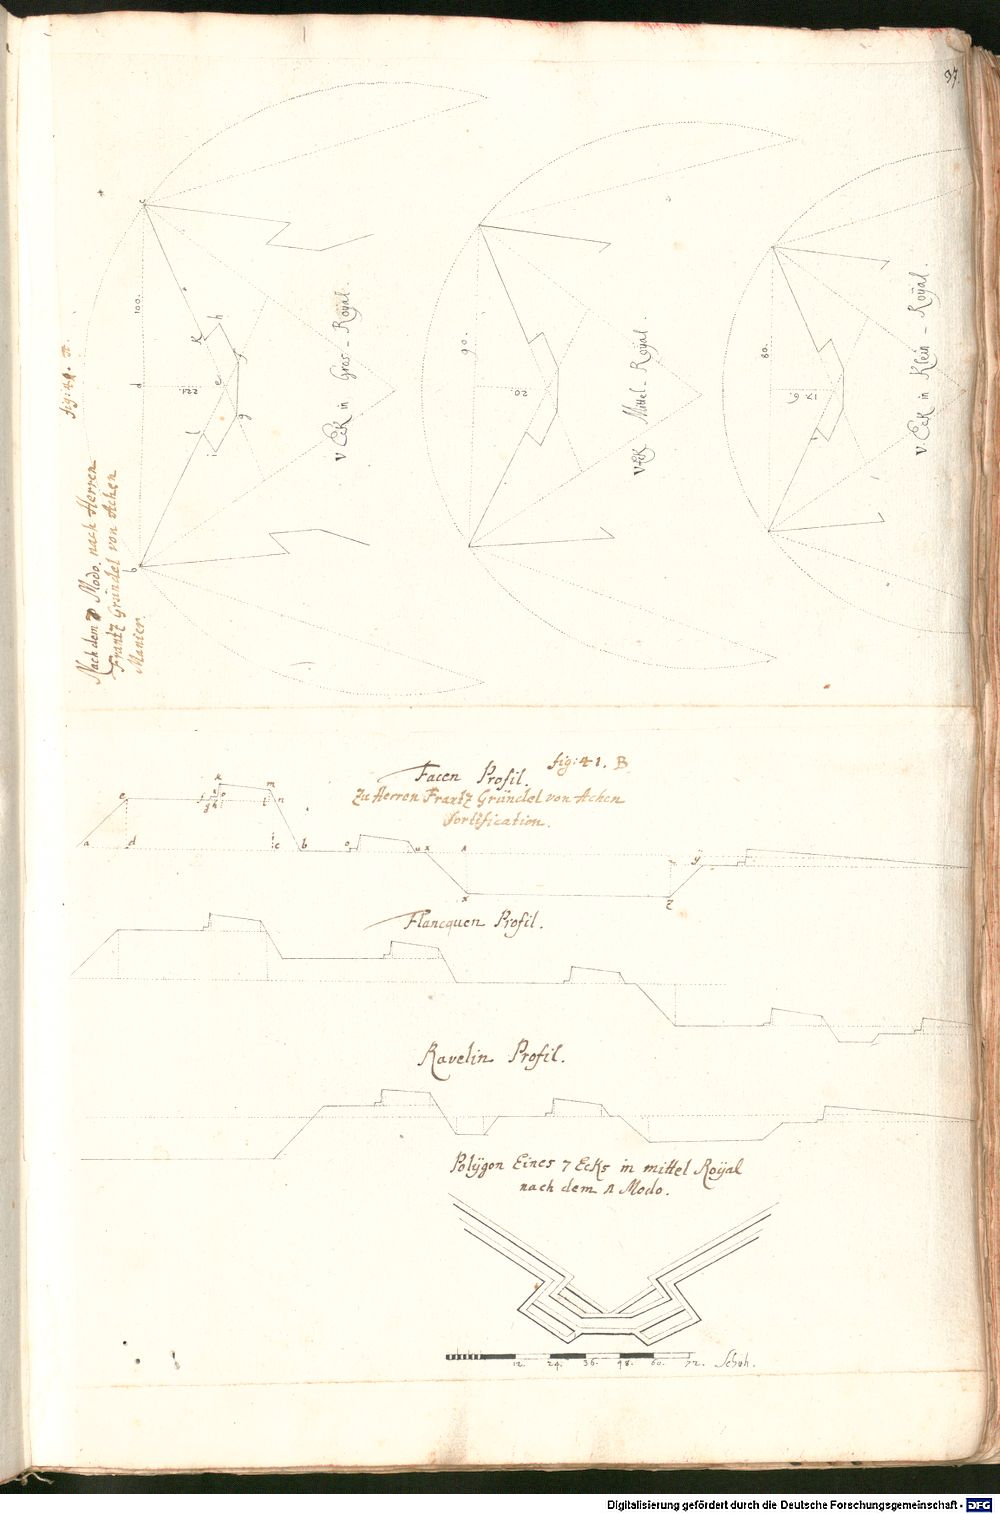 97.
fig: 41. A.
Nach dem Modo. nach Herren
Frantz Gründel von Achen
Manier.
c
100.
k
h
f
d
22½
e
g
l
i
b
V Eck in Gros - Roÿal.
90.
20.
V Eck Mittel - Roÿal.
80.
V Eck in Klein - Roÿal.
fig: 41. B
Facen Profil.
Zu Herren Frantz Gründel von Achen
Fortification.
a
d
e
f
g h
k
m
l
n
c
b
o
u x
z
ÿ
Flancquen Profil.
Ravelin Profil.
Polÿgon Eines 7 Ecks in mittel Roÿal
nach dem 1 Modo.
12. 24. 36. 48. 60. 72. Schuh.
Digitalisierung gefördert durch die Deutsche Forschungsgemeinschaft - DFG